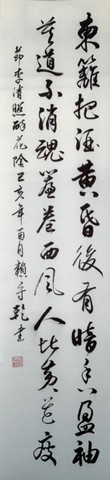 東籬把酒黃昏後有暗香盈袖
莫道不消魂簾卷西風人比黃花瘦
節李清照醉花陰己亥年酉月賴守乾書